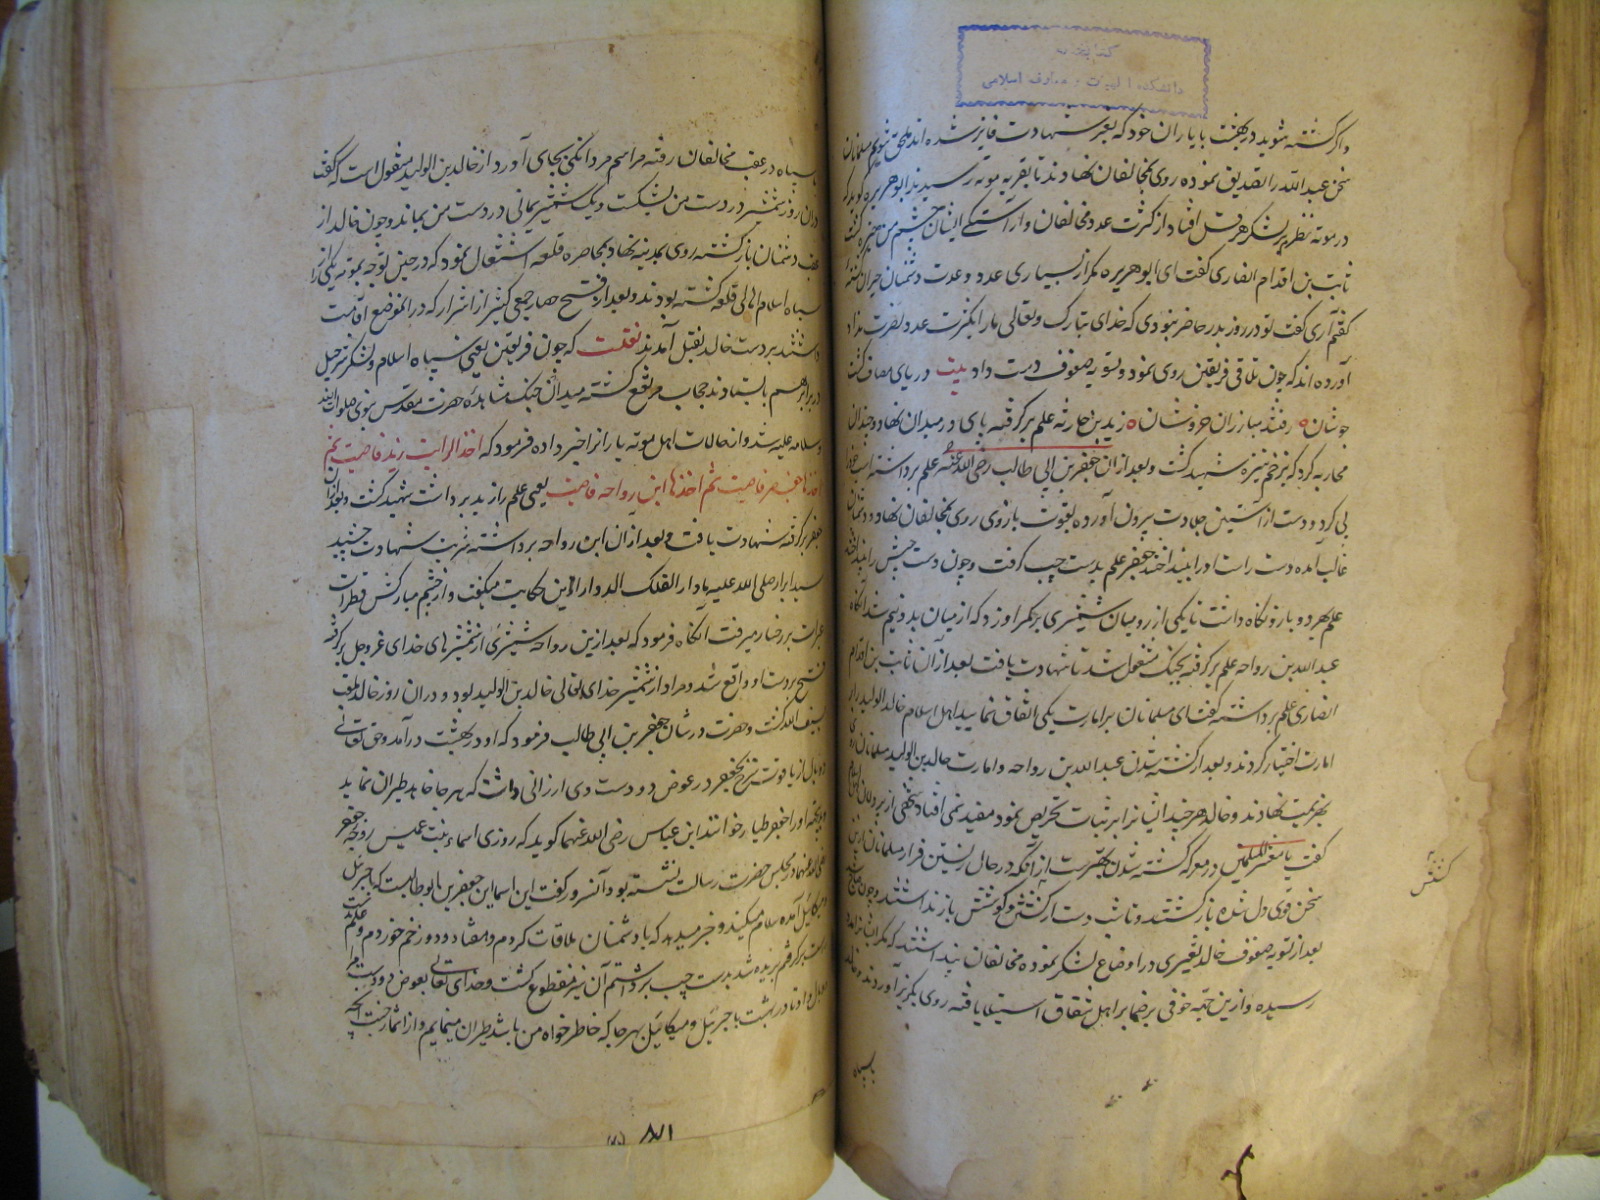 کتابخانه
دانشکده الهیات و معارف اسلامی
و اگر کشته شوید در بهشت با یاران خود که بعز شهادت فایز شده اند ملحق شویم مسلمانان
سخن عبدالله را تصدیق نموده روی بمخالفان نهادند تا بقریه موته رسیدند ابوهریره گوید که
در موته نظر بر لشکر هرقل افتاد از کثرت عدد مخالفان و آراستگی ایشان چشم من خیره گشت
ثابت بن اقدام انصاری گفت ای ابوهریره مگر از بسیاری عدد و عدت دشمنان حیران شده
گفتم آری گفت تو در روز بدر حاضر نبودی که خدای تبارک و تعالی ما را بکثرت عدد نصرت نداد
آورده اند که چون تلاقی فریقین روی نمود و تسویه صفوف دست داد بیت دریای مصاف گشت
جوشان ه رفتند مبارزان خروشان ه زید بن حارثه علم برگرفته پای در میدان نهاد و چندان
محاربه کرد که بزخم نیزه شهید گشت و بعد از ان جعفر بن ابی طالب رضی الله عنه علم برداشته اسب خود
پی کرد و دست از آستین جلادت بیرون آورده بقوت بازوی روی بمخالفان نهاد و دشمنان
غالب آمده دست راست او را بینداختند جعفر علم بدست چپ گرفت و چون دست چپش را نیز
علم بهر دو بازو نگاه داشت تا یکی از رومیان شمشیری بر کمر او زد که از میان بدو نیم شد آنگاه
عبدالله بن رواحه علم برگرفته بجنگ مشغول شد تا شهادت یافت بعد از آن ثابت بن اقدام
انصاری علم برداشته گفت ای مسلمانان بر امارت یکی اتفاق نمایید اهل اسلام خالد الولید را
امارت اختیار کردند و بعد از کشته شدن عبدالله بن رواحه و امارت خالد بن الولید مسلمانان روی
بهزیمت نهادند و خالد هر چند ایشانرا بر ثبات تحریص نمود مفید نمی افتاد شخصی از
گفت یا معشر المسلمین در معرکه کشته شدن بهتر است از آنکه در حال زیستن فرار مسلمانان ازین
سخن قوی دل شده بازگشتند و تا شب دست از کشش و کوشش باز نداشتند و چون
کشش
بعد از تسویه صفوف خالد تغییری در اوضاع لشکر نموده مخالفان پنداشتند که
رسیده و ازین جهة خوفی بر ضمایر اهل شقاق استیلا یافته روی بگریز آوردند و خالد
با سپاه
با سپاه در عقب مخالفان رفته مراسم مردانگی بجای آورد از خالد بن الولید منقول است که گفت
دران روز نه شمشیر در دست من بشکست و یک شمشیر یمانی در دست من بماند و چون خالد از
عقب دشمنان بازگشته روی بمدینه نهاد بمحاصره قلعه اشتغال نمود که در حین توجه بموته یکی را
سپاه اسلام اهالی قلعه کشته بودند و بعد از فتح حصار جمعی کثیر از اشرار که در آنموضع اقامت
داشتند بر دست خالد بقتل آمدند نقلست که چون فریقین یعنی سپاه اسلام و لشکر شرحبیل
در برابر هم بایستادند حجاب مرتفع گشته میدان جنگ مشاهده حضرت مقدس نبوی صلوات الله
و سلامه علیه شد و از حالات اهل موته یارانرا خبر داده فرمود که اخذ الرایت زید فاصیت ثم
اخذها جعفر فاصیت ثم اخذها ابن رواحه فاصیت یعنی علم را زید برداشت شهید گشت و بعد ازان
جعفر برگرفته شهادت یافت و بعد از ان ابن رواحه برداشته شربت شهادت چشید
سید ابرار صلی الله علیه مادار الفلک الدوار این حکایت میگفت و از چشم مبارکش قطرات
عبرات بر رخسار میرفت آنگاه فرمود که بعد ازین رواحه شمشیری از شمشیرهای خدای عز و جل برگرفته
فتح بر دست او واقع شد و مراد از شمشیر خدای تعالی خالد بن الولید بود و دران روز خالد ملقب
بسیف الله گشت و حضرت در شان جعفر بن ابی طالب فرمود که او در بهشت درآمد و حق تعالی
دو بال از یاقوت سرخ بجعفر در عوض دو دست وی ارزانی داشت که هر جا خاهد طیران نماید
او را جعفر طیار خوانند ابن عباس رضی الله عنهما گوید که روزی اسماء بنت عمیس زوجه جعفر
رضی الله عنهما در مجلس حضرت رسالت نشسته بود و آنسرور گفت این اسما این جعفر بن ابوطالبست که با جبرئیل
و میکائیل آمده سلام میکند و خبر میدهد که با دشمنان ملاقات کردم و هفتاد و دو زخم خوردم و علم بدست
راست برگرفتم بریده شد بدست چپ برداشتم آن نیز منقطع گشت و خدای تعالی بعوض دو دست مرا
دو بال داد تا در بهشت با جبرئیل و میکائیل بهر جا که خاطر خواه من باشد طیران مینمایم و از اثمار جنت آنچه
۱۸۱